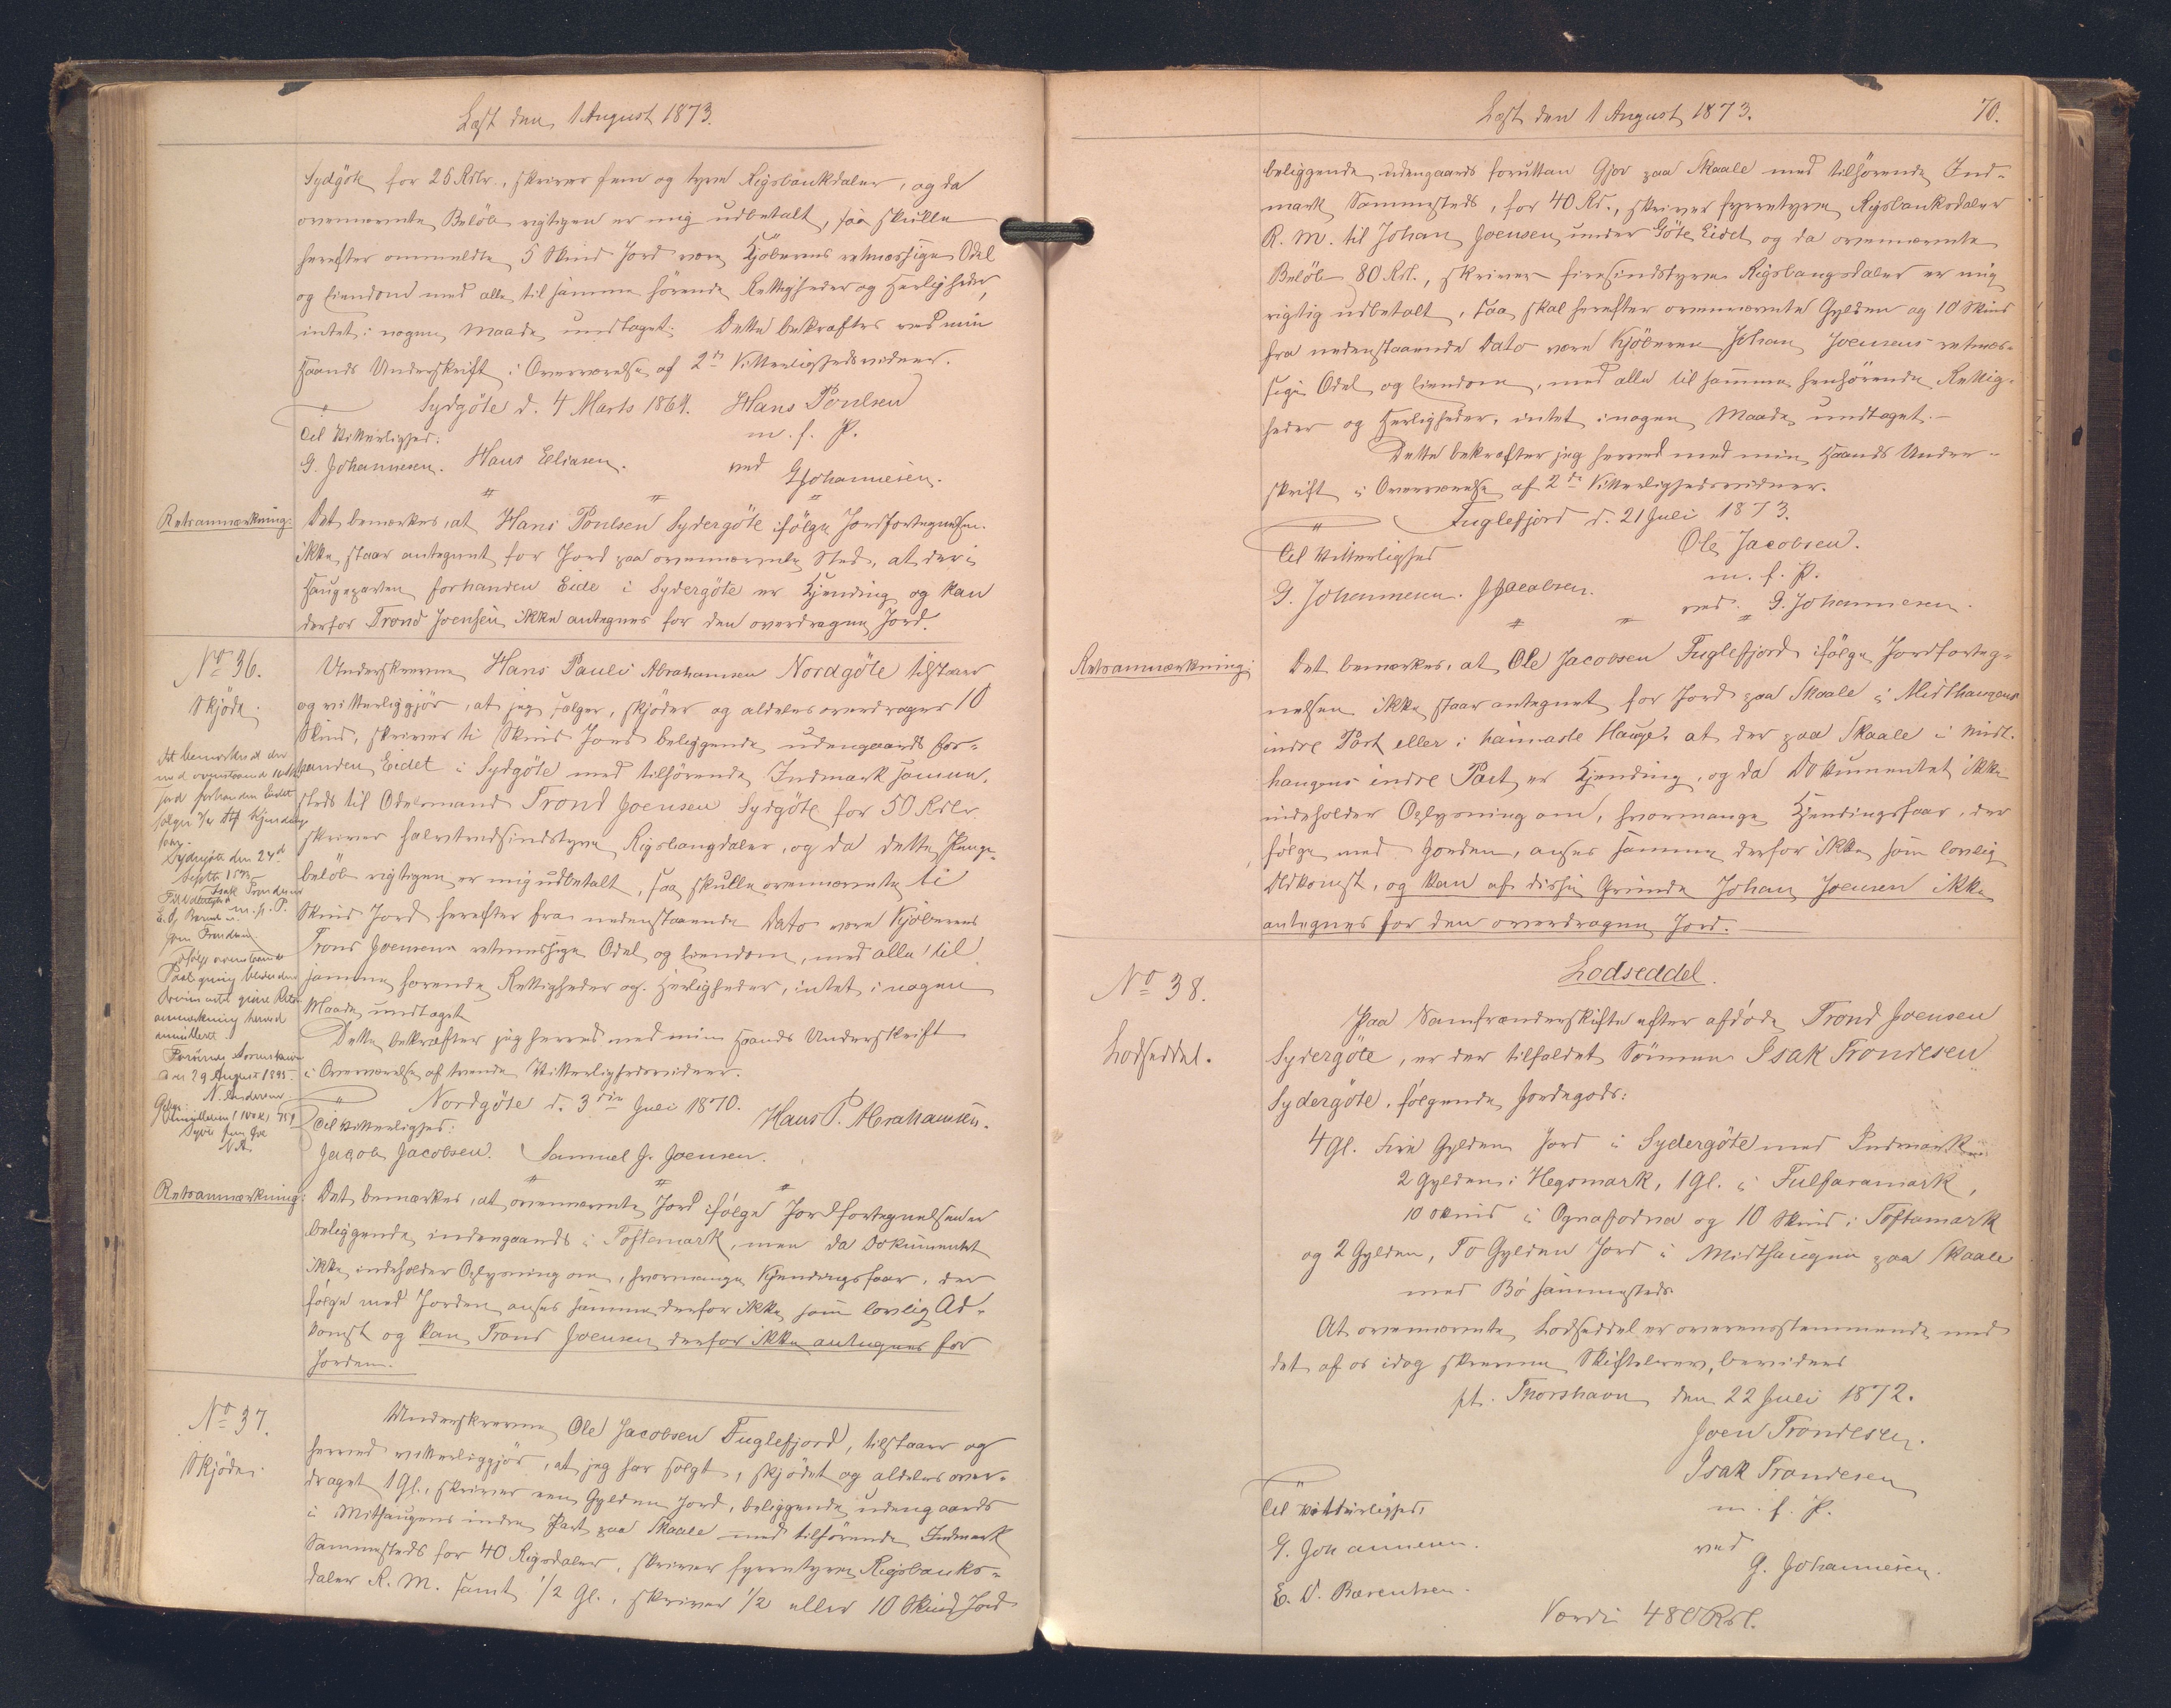 Læst den 1 August 1873.
Sydgöte for 25 Rdlr., skriver fem og tyve Rigsbankdaler, og da
ovennævnte Beløb rigtigen er mig udbetalt, saa skulle
herefter ommeldte 5 Skind Jord være Kjøberens retmæssige Odel
og Eiendom med alle til samme hørende Rettigheder og Herligheder,
intet i nogen Maade undtaget. Dette bekræftes ved min
Haands Underskrift i Overværelse af 2de Vitterlighedsvidner.
Sydgöte d. 4 Marts 1864. Hans Poulsen
Til Vitterlighed: m. f. P.
G. Johannesen. Hans Eliasen. ved GJohannesen.
Retsanmærkning: Det bemærkes, at Hans Poulsen Sydergöte ifølge Jordfortegnelsen
ikke staar antegnet for Jord paa ovennævnte Sted, at der i
Haugeparten forhanden Eide i Sydergöte er Kjending og kan
derfor Trond Joensen ikke antegnes for den overdragne Jord.
No 36.
Skjøde.
Underskrevne Hans Pauli Abrahamsen Nordgöte tilstaar
og vitterliggjør, at jeg sælger, skjøder og aldeles overdrager 10
Skind, skriver ti Skind Jord beliggende udengaards for-
handen Eidet i Sydgöte med tilhørende Indmark sammen-
steds til Odelsmand Trond Joensen Sydgöte for 50 Rdlr.
skriver halvtredsindstyve Rigsbangdaler, og da dette Penge-
beløb rigtigen er mig udbetalt, saa skulle ovennævnte ti
Skind Jord herefter fra nedenstaaende Dato være Kjøberens
Trond Joensens retmæssige Odel og Eiendom, med alle til
samme hørende Rettigheder og Herligheder, intet i nogen
Maade undtaget.
Dette bekræfter jeg herved med min Haands Underskrift
i Overværelse af tvende Vitterlighedsvidner.
Nordgöte d. 3die Juli 1870. Hans P. Abrahamsen.
Til Vitterlighed:
Jacob Jacobsen. Samuel J. Joensen.
At bemærkes at der
med ovenstaaende 10 Skd
Jord forhanden Eidet
følger
Sydergöte den 24de
Septbr 1893
Isak Trondesen
m. f. P.
Joen Trondesen
anmærkning herved
annulleret
den 29 August 1895.
N. Andersen
Retsanmærkning: Det bemærkes, at ovennævnte Jord ifølge Jordfortegnelsen er
beliggende indengaards i Toftemark, men da Dokumentet
ikke indeholder Oplysning om, hvormange Kjendingsfaar, der
følge med Jorden, anses samme derfor ikke som lovlig Ad-
komst og kan Trond Joensen derfor ikke antegnes for
Jorden.
No 37.
Skjøde.
Underskrevne Ole Jacobsen Fuglefjord, tilstaar og
herved vitterliggjør, at jeg har solgt, skjødet og aldeles over-
draget 1 Gl., skriver een Gylden Jord, beliggende udengaards
i Mithaugens indre Part paa Skaale med tilhørende Indmark
Sammesteds for 40 Rigsdaler, skriver fyrretyve Rigsbanks-
daler R. M. samt 1/2 Gl., skriver 1/2 eller 10 Skind Jord
Læst den 1 August 1873. 70.
beliggende udengaards foruttan Gjov paa Skaale med tilhørende Ind-
mark Sammesteds, for 40 Rd., skriver fyrretyve Rigsbanksdaler
R. M. til Johan Joensen under Göte Eidet og da ovennævnte
Beløb 80 Rdl., skriver firesindstyve Rigsbangsdaler er mig
rigtig udbetalt, saa skal herefter ovennævnte Gylden og 10 Skind
fra nedenstaaende Dato være Kjøberen Johan Joensens retmæs-
sige Odel og Eiendom, med alle til samme henhørende Rettig-
heder og Herligheder, intet i nogen Maade undtaget.-
Dette bekræfter jeg herved med min Haands Under-
skrift i Overværelse af 2de Vitterlighedsvidner.
Fuglefjord d. 21 Juli 1873.
Til Vitterlighed Ole Jacobsen.
G. Johannesen. J Jacobsen. m. f. P.
ved G. Johannesen.
Retsanmærkning: Det bemærkes, at Ole Jacobsen Fuglefjord ifølge Jordforteg-
nelsen ikke staar antegnet for Jord paa Skaale i Midthaugens
indre Part eller i haimaste Hauge, at der paa Skaale i Midt-
haugens indre Part er Kjending, og da Dokumentet ikke
indeholder Oplysning om, hvormange Kjendingsfaar, der
følge med Jorden, anses samme derfor ikke som lovlig
Adkomst, og kan af disse Grunde Johan Joensen ikke
antegnes for den overdragne Jord.
No 38.
Lodseddel.
Lodseddel.
Paa Samfrænderskifte efter afdøde Trond Joensen
Sydergöte, er der tilfaldet Sønnen Isak Trondesen
Sydergöte, følgende Jordegods:
4 Gl. Fire Gylden Jord i Sydergöte med Indmark
2 Gylden i Hegsmark, 1 Gl. i Fulsaramark,
10 Skind i Ognaforna og 10 Skind i Toftamark
og 2 Gylden, To Gylden Jord i Midthaugen paa Skaale
med Bø sammesteds
At ovennævnte Lodseddel er overensstemmende med
det af os idag skrevne Skiftebrev, bevidnes
pt. Thorshavn den 22 Juli 1872.
Joen Trondesen.
Isak Trondesen
Til Vitterlighed: m. f. P.
G. Johannesen. ved
E. V. Bærentsen. G. Johannesen.
Værdi 480 Rdl.